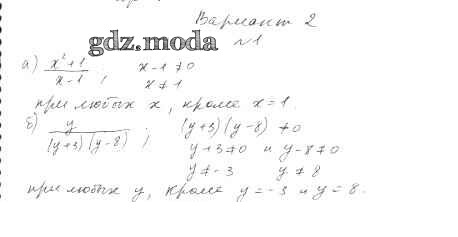 Вариант 2
gdz.moda №1
а) x²+1 / x-1 ; x-1≠0
x≠1
при любых x, кроме x=1.
б) y / (y+3)(y-8) ; (y+3)(y-8)≠0
y+3≠0 и y-8≠0
y≠-3 y≠8
при любых y, кроме y=-3 и y=8.